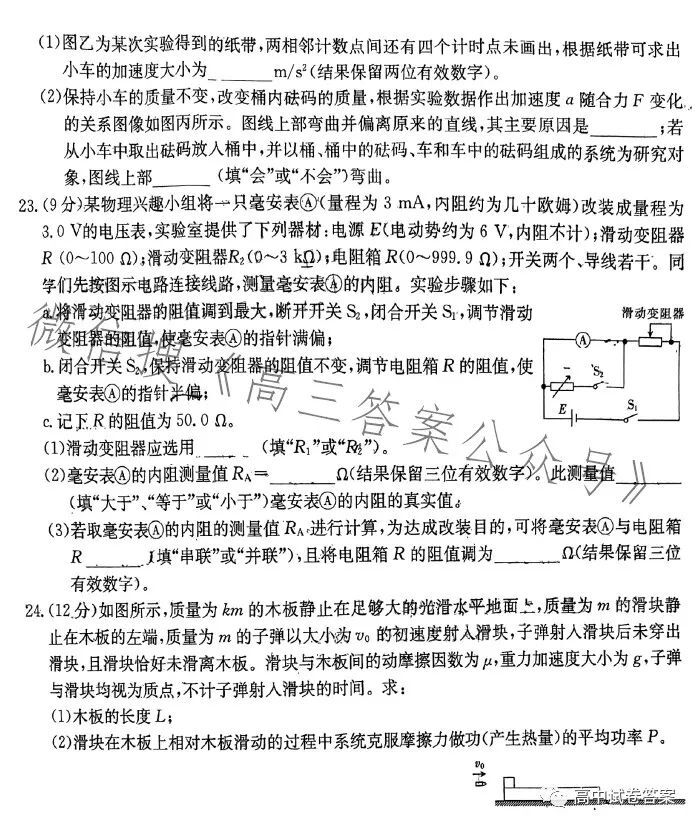 (1)图乙为某次实验得到的纸带,两相邻计数点间还有四个计时点未画出,根据纸带可求出
小车的加速度大小为________m/s²(结果保留两位有效数字)。
(2)保持小车的质量不变,改变桶内砝码的质量,根据实验数据作出加速度 a 随合力 F 变化
的关系图像如图丙所示。图线上部弯曲并偏离原来的直线,其主要原因是________;若
从小车中取出砝码放入桶中,并以桶、桶中的砝码、车和车中的砝码组成的系统为研究对
象,图线上部________(填“会”或“不会”)弯曲。
23.(9分)某物理兴趣小组将一只毫安表Ⓐ(量程为 3 mA,内阻约为几十欧姆)改装成量程为
3.0 V的电压表,实验室提供了下列器材:电源 E(电动势约为 6 V,内阻不计);滑动变阻器
R (0~100 Ω);滑动变阻器R₂(0~3 kΩ);电阻箱 R(0~999.9 Ω);开关两个、导线若干。同
学们先按图示电路连接线路,测量毫安表Ⓐ的内阻。实验步骤如下:
a.将滑动变阻器的阻值调到最大,断开开关 S₂,闭合开关 S₁,调节滑动
变阻器的阻值,使毫安表Ⓐ的指针满偏;
滑动变阻器
A
S₂
E
S₁
b.闭合开关 S₂,保持滑动变阻器的阻值不变,调节电阻箱 R 的阻值,使
毫安表Ⓐ的指针半偏;
c.记下 R 的阻值为 50.0 Ω。
(1)滑动变阻器应选用________(填“R₁”或“R₂”)。
(2)毫安表Ⓐ的内阻测量值 R_A=________Ω(结果保留三位有效数字)。此测量值________
(填“大于”、“等于”或“小于”)毫安表Ⓐ的内阻的真实值。
(3)若取毫安表Ⓐ的内阻的测量值 R_A 进行计算,为达成改装目的,可将毫安表Ⓐ与电阻箱
R ________(填“串联”或“并联”),且将电阻箱 R 的阻值调为________Ω(结果保留三位
有效数字)。
24.(12分)如图所示,质量为 km 的木板静止在足够大的光滑水平地面上,质量为 m 的滑块静
止在木板的左端,质量为 m 的子弹以大小为 v₀ 的初速度射入滑块,子弹射入滑块后未穿出
滑块,且滑块恰好未滑离木板。滑块与木板间的动摩擦因数为 μ,重力加速度大小为 g,子弹
与滑块均视为质点,不计子弹射入滑块的时间。求:
(1)木板的长度 L;
(2)滑块在木板上相对木板滑动的过程中系统克服摩擦力做功(产生热量)的平均功率 P。
v₀
微信搜《高三答案公众号》
高中试卷答案